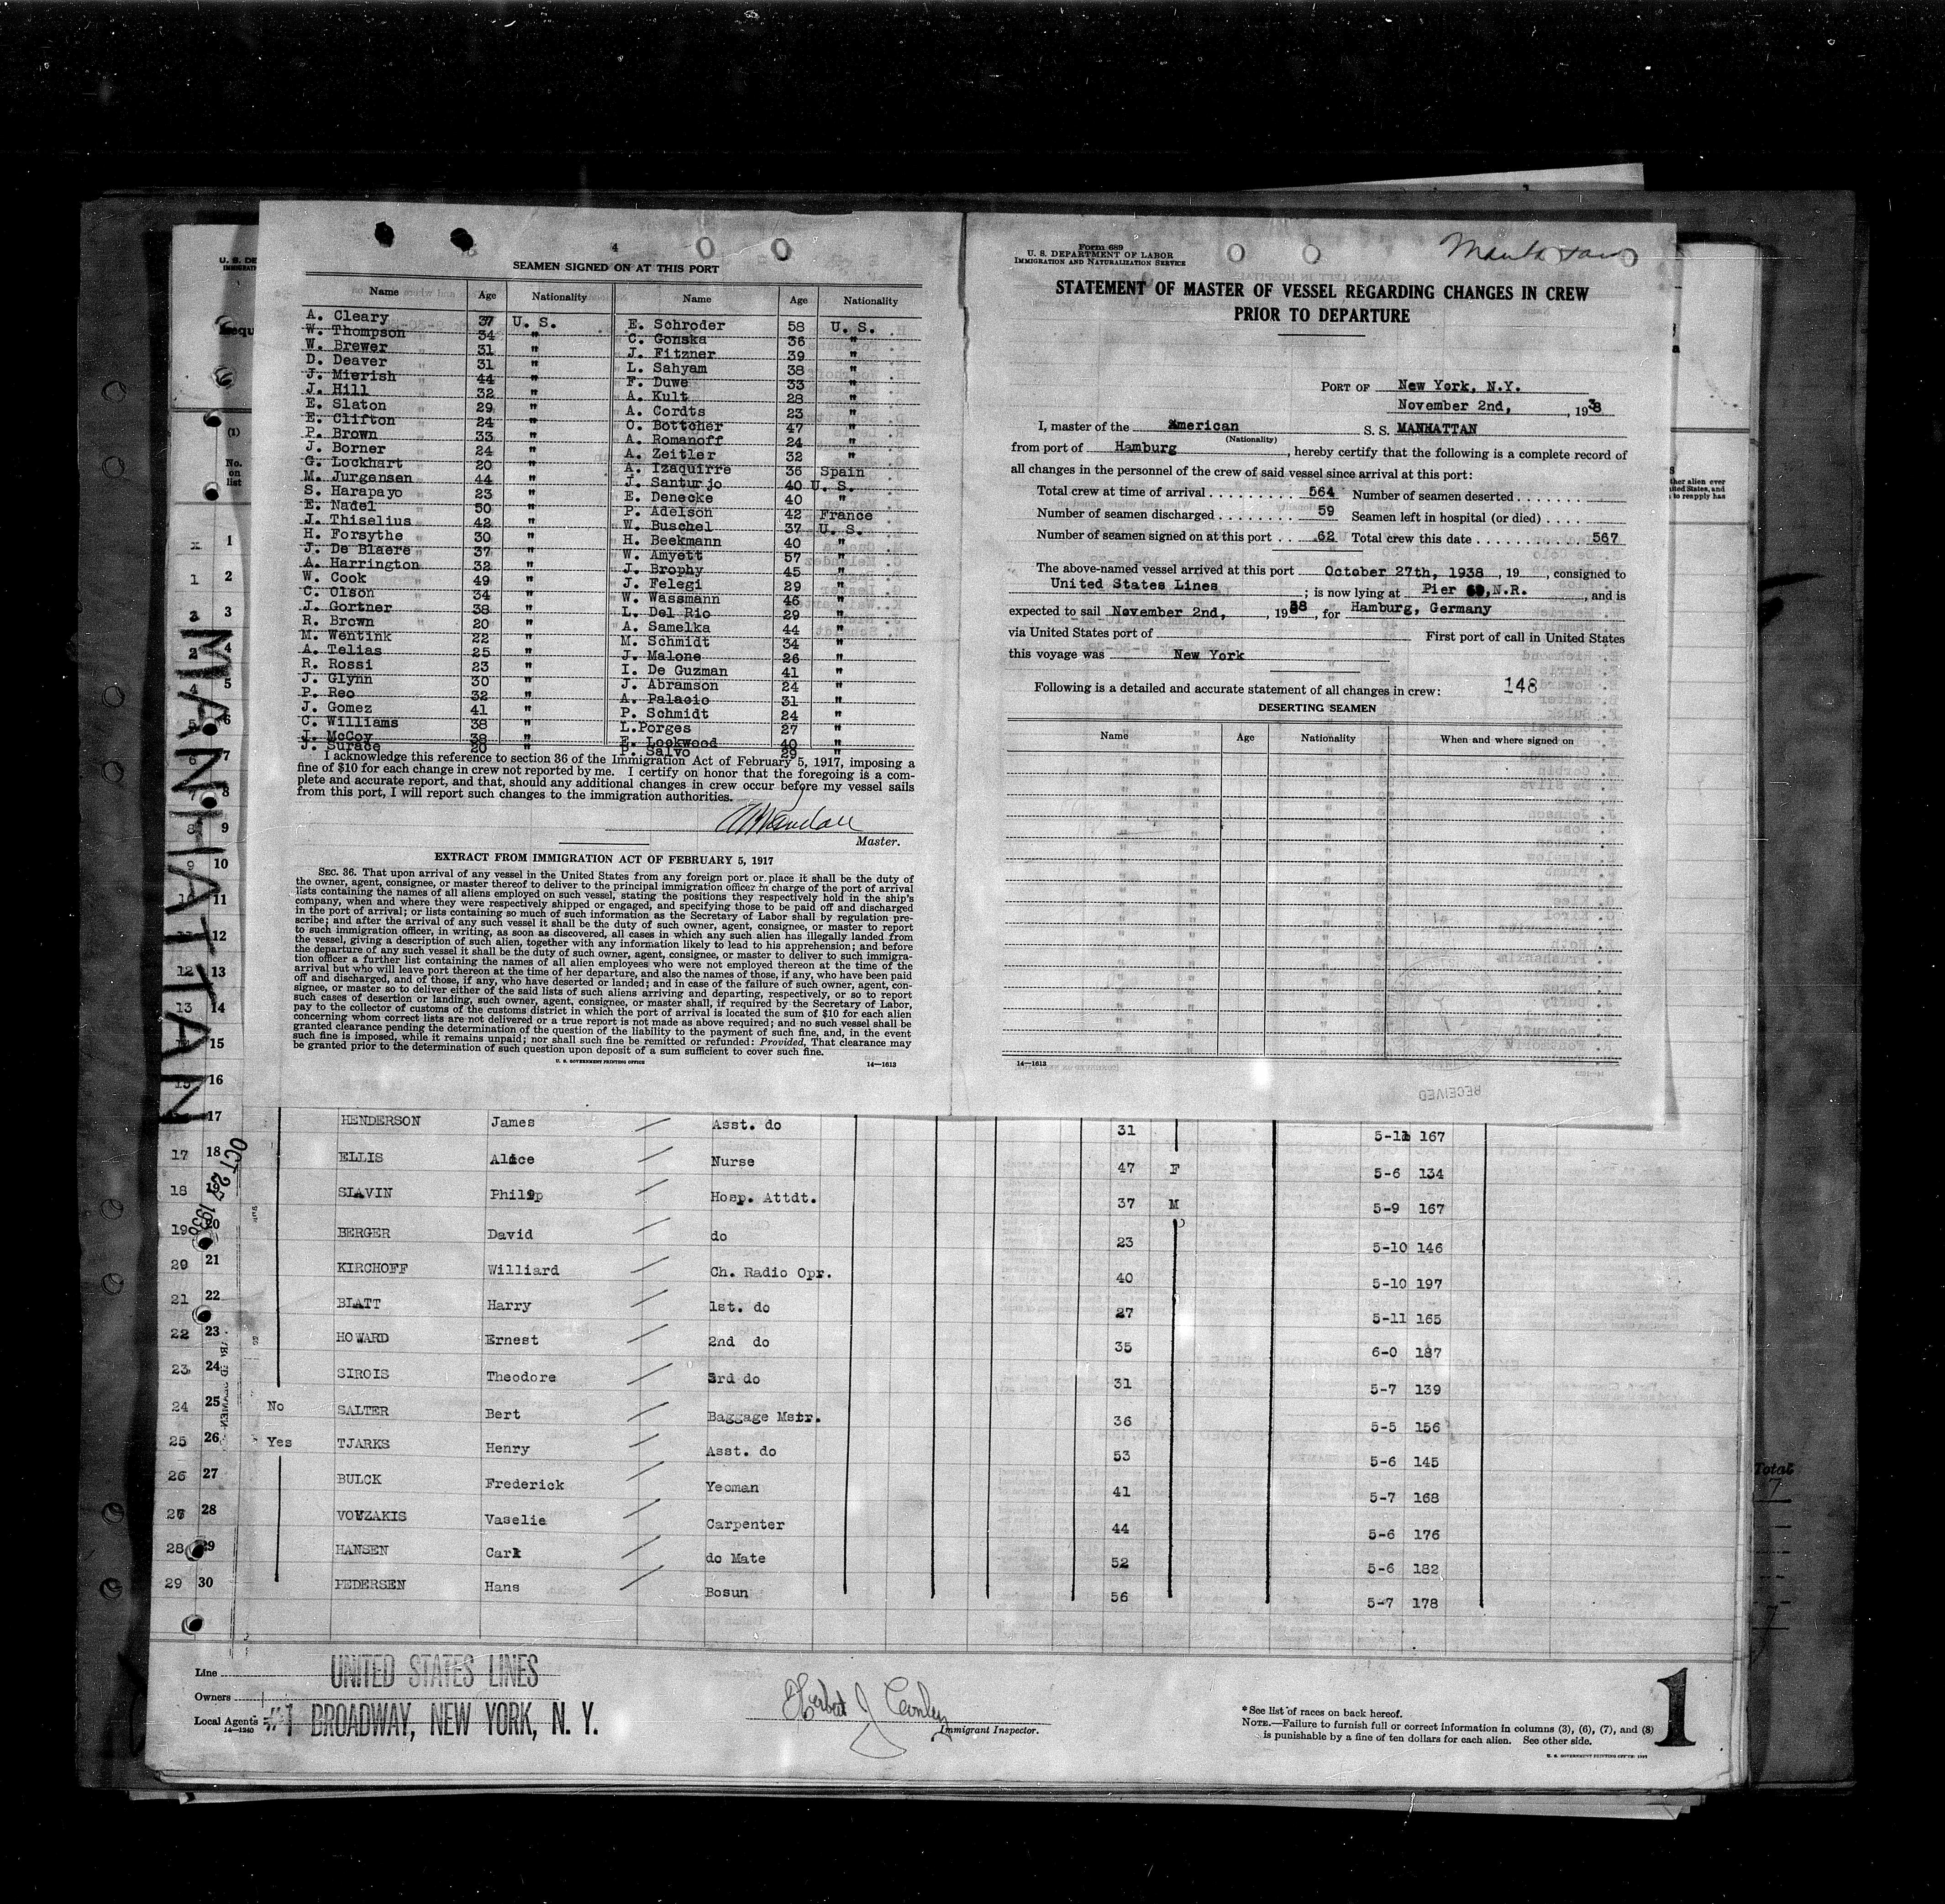 4
SEAMEN SIGNED ON AT THIS PORT
Name Age Nationality Name Age Nationality
A. Cleary 37 U. S. E. Schroder 58 U. S.
W. Thompson 34 " C. Gonska 36 "
W. Brewer 31 " J. Fitzner 39 "
D. Deaver 31 " L. Sahyam 38 "
J. Mierish 44 " F. Duwe 33 "
J. Hill 32 " A. Kult 28 "
E. Slaton 29 " A. Cordts 23 "
E. Clifton 24 " O. Bottcher 47 "
P. Brown 33 " A. Romanoff 24 "
J. Borner 24 " A. Zeitler 32 "
G. Lockhart 20 " A. Izaquirre 36 Spain
M. Jurgensen 44 " J. Santurjo 40 U. S.
S. Harapayo 23 " E. Denecke 40 "
E. Nadel 50 " P. Adelson 42 France
J. Thiselius 42 " W. Buschel 37 U. S.
H. Forsythe 30 " H. Beekmann 40 "
J. De Blaere 37 " W. Amyett 57 "
A. Harrington 32 " J. Brophy 45 "
W. Cook 49 " J. Felegi 29 "
C. Olson 34 " W. Wassmann 46 "
J. Gortner 38 " L. Del Rio 29 "
R. Brown 20 " A. Samelka 44 "
M. Wentink 22 " M. Schmidt 34 "
A. Telias 25 " J. Malone 26 "
R. Rossi 23 " I. De Guzman 41 "
J. Glynn 30 " J. Abramson 24 "
P. Reo 32 " A. Palacio 31 "
J. Gomez 41 " P. Schmidt 24 "
C. Williams 38 " L.Porges 27 "
J. McCoy 38 " E. Lockwood 40 "
J. Surace 20 " P. Salvo 29 "
I acknowledge this reference to section 36 of the Immigration Act of February 5, 1917, imposing a
fine of $10 for each change in crew not reported by me. I certify on honor that the foregoing is a com-
plete and accurate report, and that, should any additional changes in crew occur before my vessel sails
from this port, I will report such changes to the immigration authorities.
Master.
EXTRACT FROM IMMIGRATION ACT OF FEBRUARY 5, 1917
SEC. 36. That upon arrival of any vessel in the United States from any foreign port or place it shall be the duty of
the owner, agent, consignee, or master thereof to deliver to the principal immigration officer in charge of the port of arrival
lists containing the names of all aliens employed on such vessel, stating the positions they respectively hold in the ship's
company, when and where they were respectively shipped or engaged, and specifying those to be paid off and discharged
in the port of arrival; or lists containing so much of such information as the Secretary of Labor shall by regulation pre-
scribe; and after the arrival of any such vessel it shall be the duty of such owner, agent, consignee, or master to report
to such immigration officer, in writing, as soon as discovered, all cases in which any such alien has illegally landed from
the vessel, giving a description of such alien, together with any information likely to lead to his apprehension; and before
the departure of any such vessel it shall be the duty of such owner, agent, consignee, or master to deliver to such immigra-
tion officer a further list containing the names of all alien employees who were not employed thereon at the time of the
arrival but who will leave port thereon at the time of her departure, and also the names of those, if any, who have been paid
off and discharged, and of those, if any, who have deserted or landed; and in case of the failure of such owner, agent, con-
signee, or master so to deliver either of the said lists of such aliens arriving and departing, respectively, or so to report
such cases of desertion or landing, such owner, agent, consignee, or master shall, if required by the Secretary of Labor,
pay to the collector of customs of the customs district in which the port of arrival is located the sum of $10 for each alien
concerning whom correct lists are not delivered or a true report is not made as above required; and no such vessel shall be
granted clearance pending the determination of the question of the liability to the payment of such fine, and, in the event
such fine is imposed, while it remains unpaid; nor shall such fine be remitted or refunded: Provided, That clearance may
be granted prior to the determination of such question upon deposit of a sum sufficient to cover such fine.
U. S. GOVERNMENT PRINTING OFFICE 14—1613
Form 689
U. S. DEPARTMENT OF LABOR
IMMIGRATION AND NATURALIZATION SERVICE
Manhattan
STATEMENT OF MASTER OF VESSEL REGARDING CHANGES IN CREW
PRIOR TO DEPARTURE
PORT OF New York, N.Y.
November 2nd, , 1938
I, master of the American S. S. MANHATTAN
(Nationality)
from port of Hamburg , hereby certify that the following is a complete record of
all changes in the personnel of the crew of said vessel since arrival at this port:
Total crew at time of arrival 564 Number of seamen deserted
Number of seamen discharged 59 Seamen left in hospital (or died)
Number of seamen signed on at this port 62 Total crew this date 567
The above-named vessel arrived at this port October 27th, 1938 , 19 , consigned to
United States Lines ; is now lying at Pier 60,N.R. , and is
expected to sail November 2nd, , 1938 , for Hamburg, Germany
via United States port of First port of call in United States
this voyage was New York
Following is a detailed and accurate statement of all changes in crew: 148
DESERTING SEAMEN
Name Age Nationality When and where signed on
14—1613
RECEIVED
MANHATTAN
OCT 27 1938
HENDERSON James Asst. do 31 5-11 167
17 18 ELLIS Alice Nurse 47 F 5-6 134
18 19 SLAVIN Philip Hosp. Attdt. 37 M 5-9 167
19 20 BERGER David do 23 5-10 146
20 21 KIRCHOFF Williard Ch. Radio Opr. 40 5-10 197
21 22 BLATT Harry 1st. do 27 5-11 165
22 23 HOWARD Ernest 2nd do 35 6-0 187
23 24 SIROIS Theodore 3rd do 31 5-7 139
24 25 No SALTER Bert Baggage Mstr. 36 5-5 156
25 26 Yes TJARKS Henry Asst. do 53 5-6 145
26 27 BULCK Frederick Yeoman 41 5-7 168
27 28 VOUZAKIS Vaselie Carpenter 44 5-6 176
28 29 HANSEN Carl do Mate 52 5-6 182
29 30 PEDERSEN Hans Bosun 56 5-7 178
Total
7
Line UNITED STATES LINES
Owners
Local Agents #1 BROADWAY, NEW YORK, N. Y.
14—1240
Immigrant Inspector.
*See list of races on back hereof.
NOTE.—Failure to furnish full or correct information in columns (3), (6), (7), and (8)
is punishable by a fine of ten dollars for each alien. See other side.
1